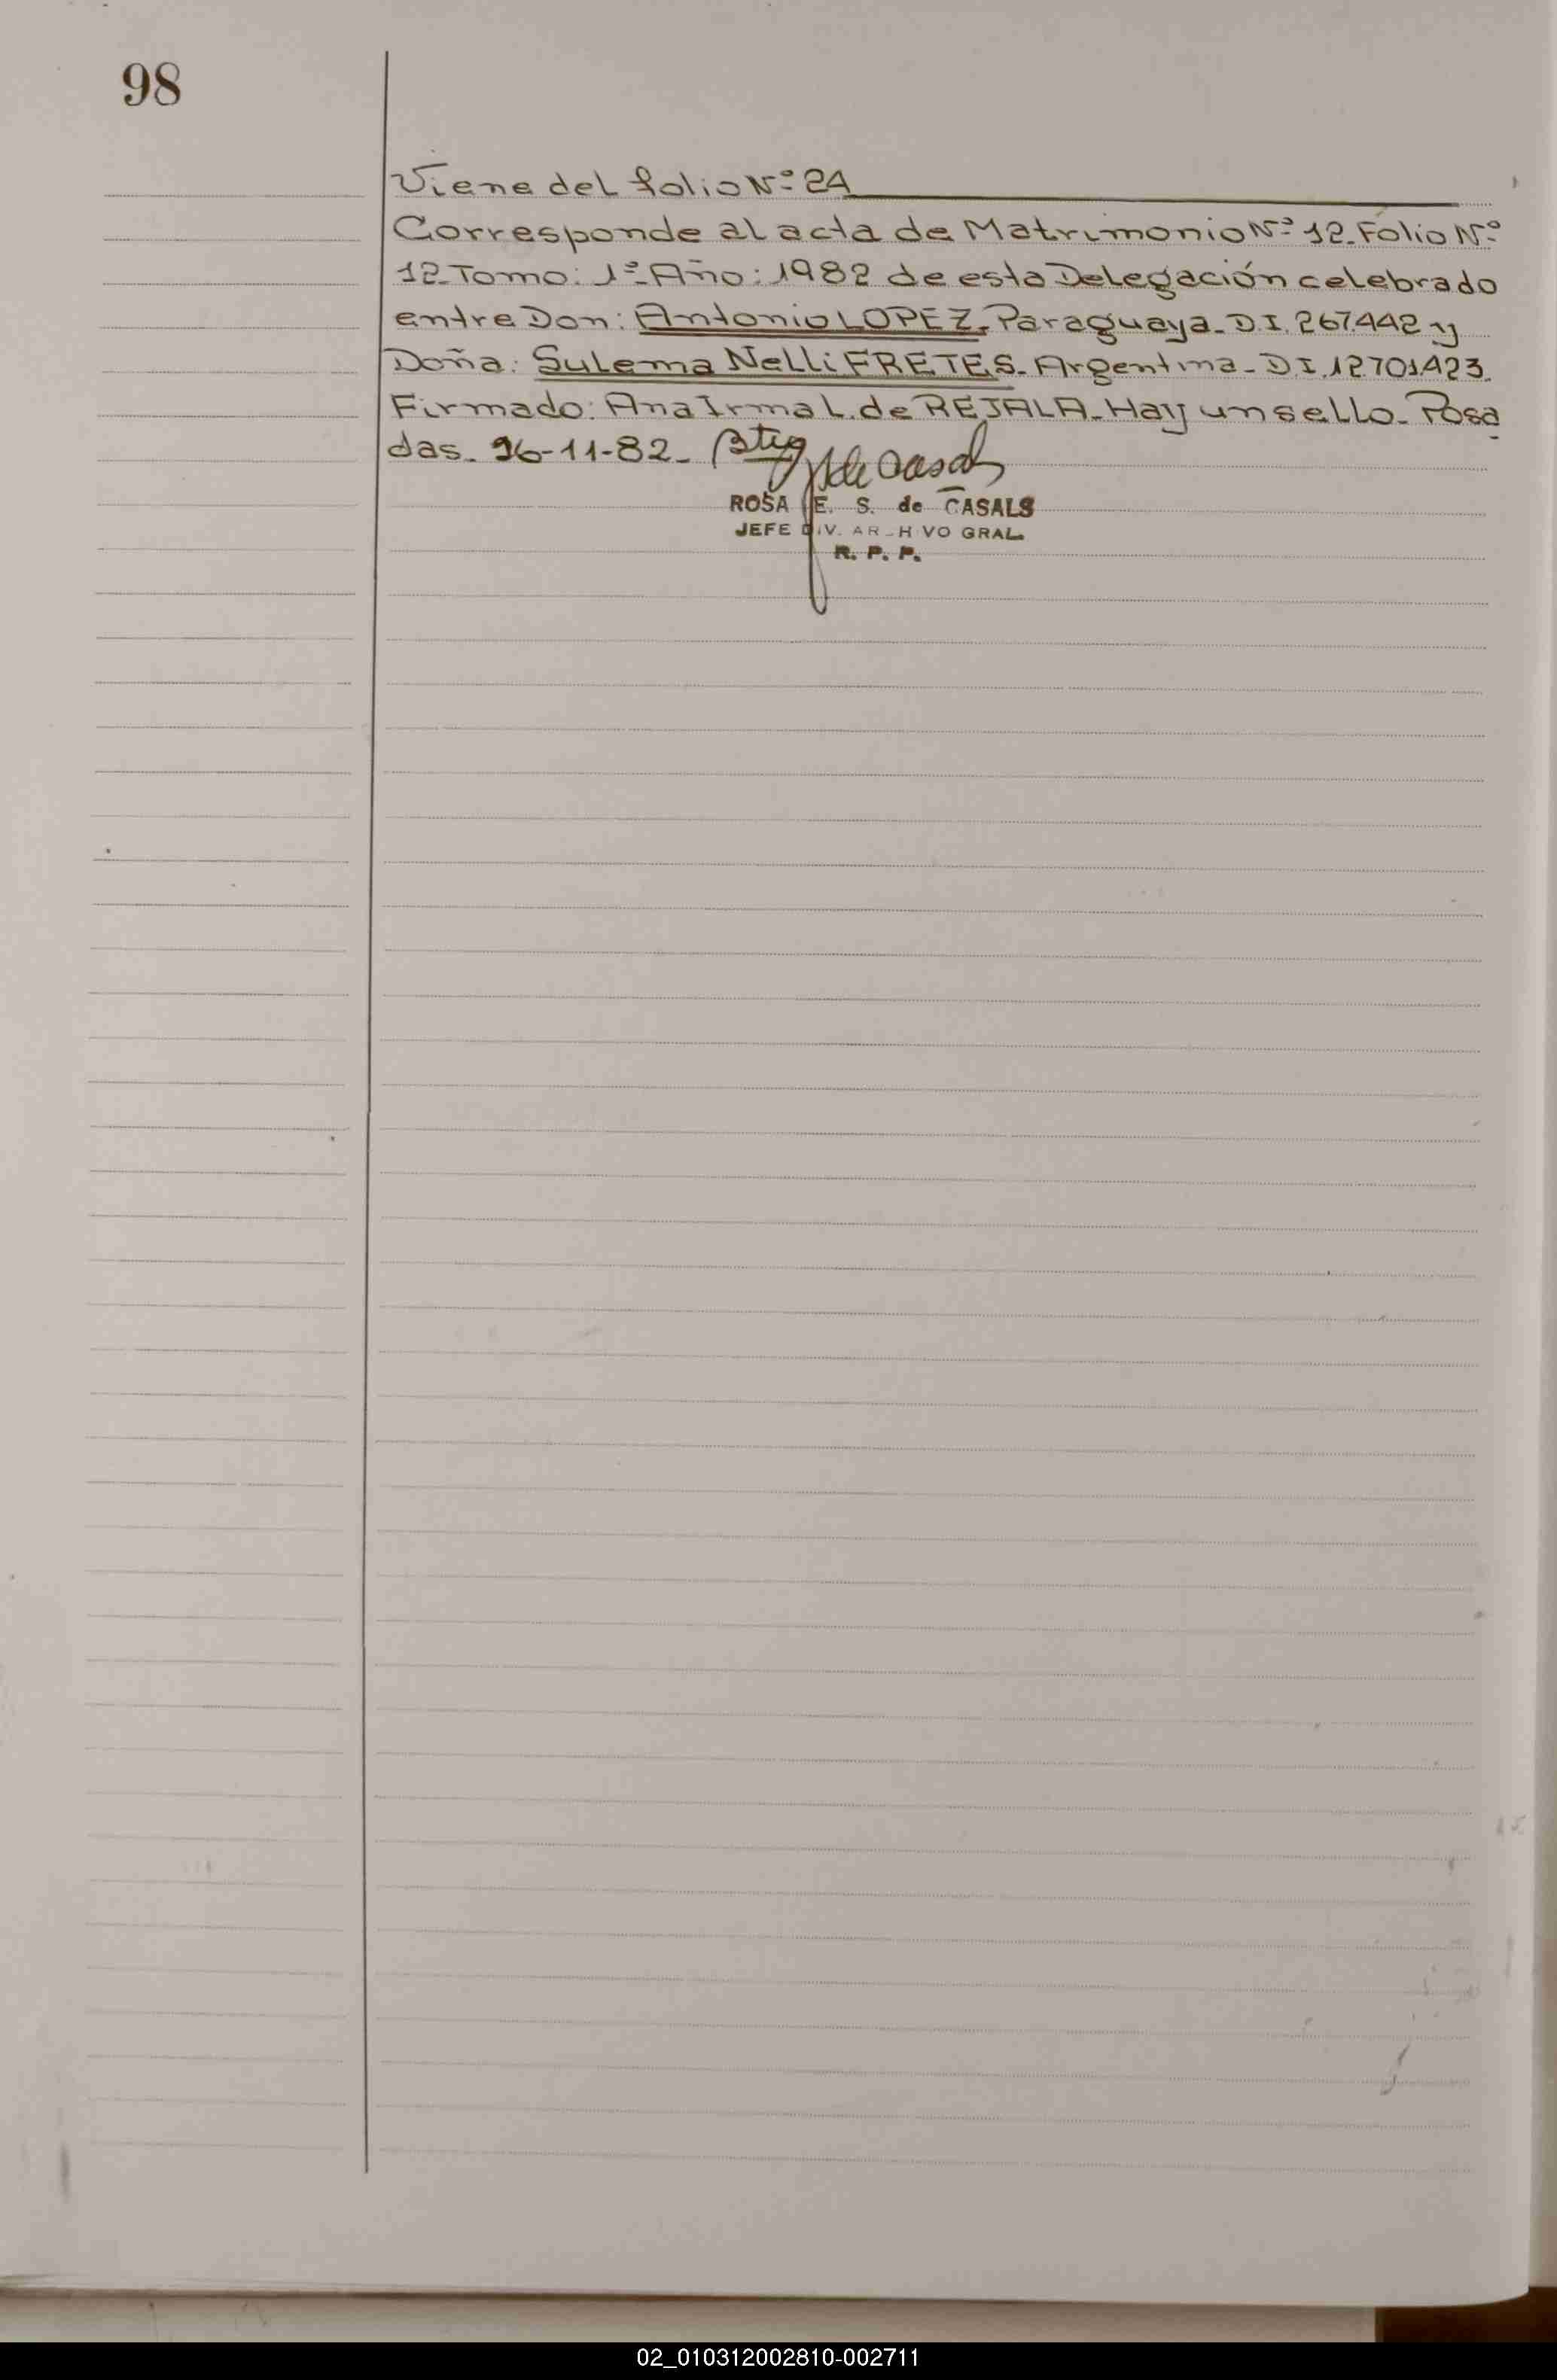 98
Viene del folio Nº 24
Corresponde al acta de Matrimonio Nº 12. Folio Nº
12_Tomo: 1º_Año: 1982 de esta Delegación celebrado
entre Don: Antonio LOPEZ. Paraguaya_D.I. 267.442 y
Doña: Sulema Nelli FRETES_Argentina_D.I. 12.701.423.
Firmado: Ana Irma L. de REJALA_Hay un sello_Posa
das_26-11-82_
ROSA E. S. de CASALS
JEFE DIV. AR HIVO GRAL.
R. P. P.
02_010312002810-002711